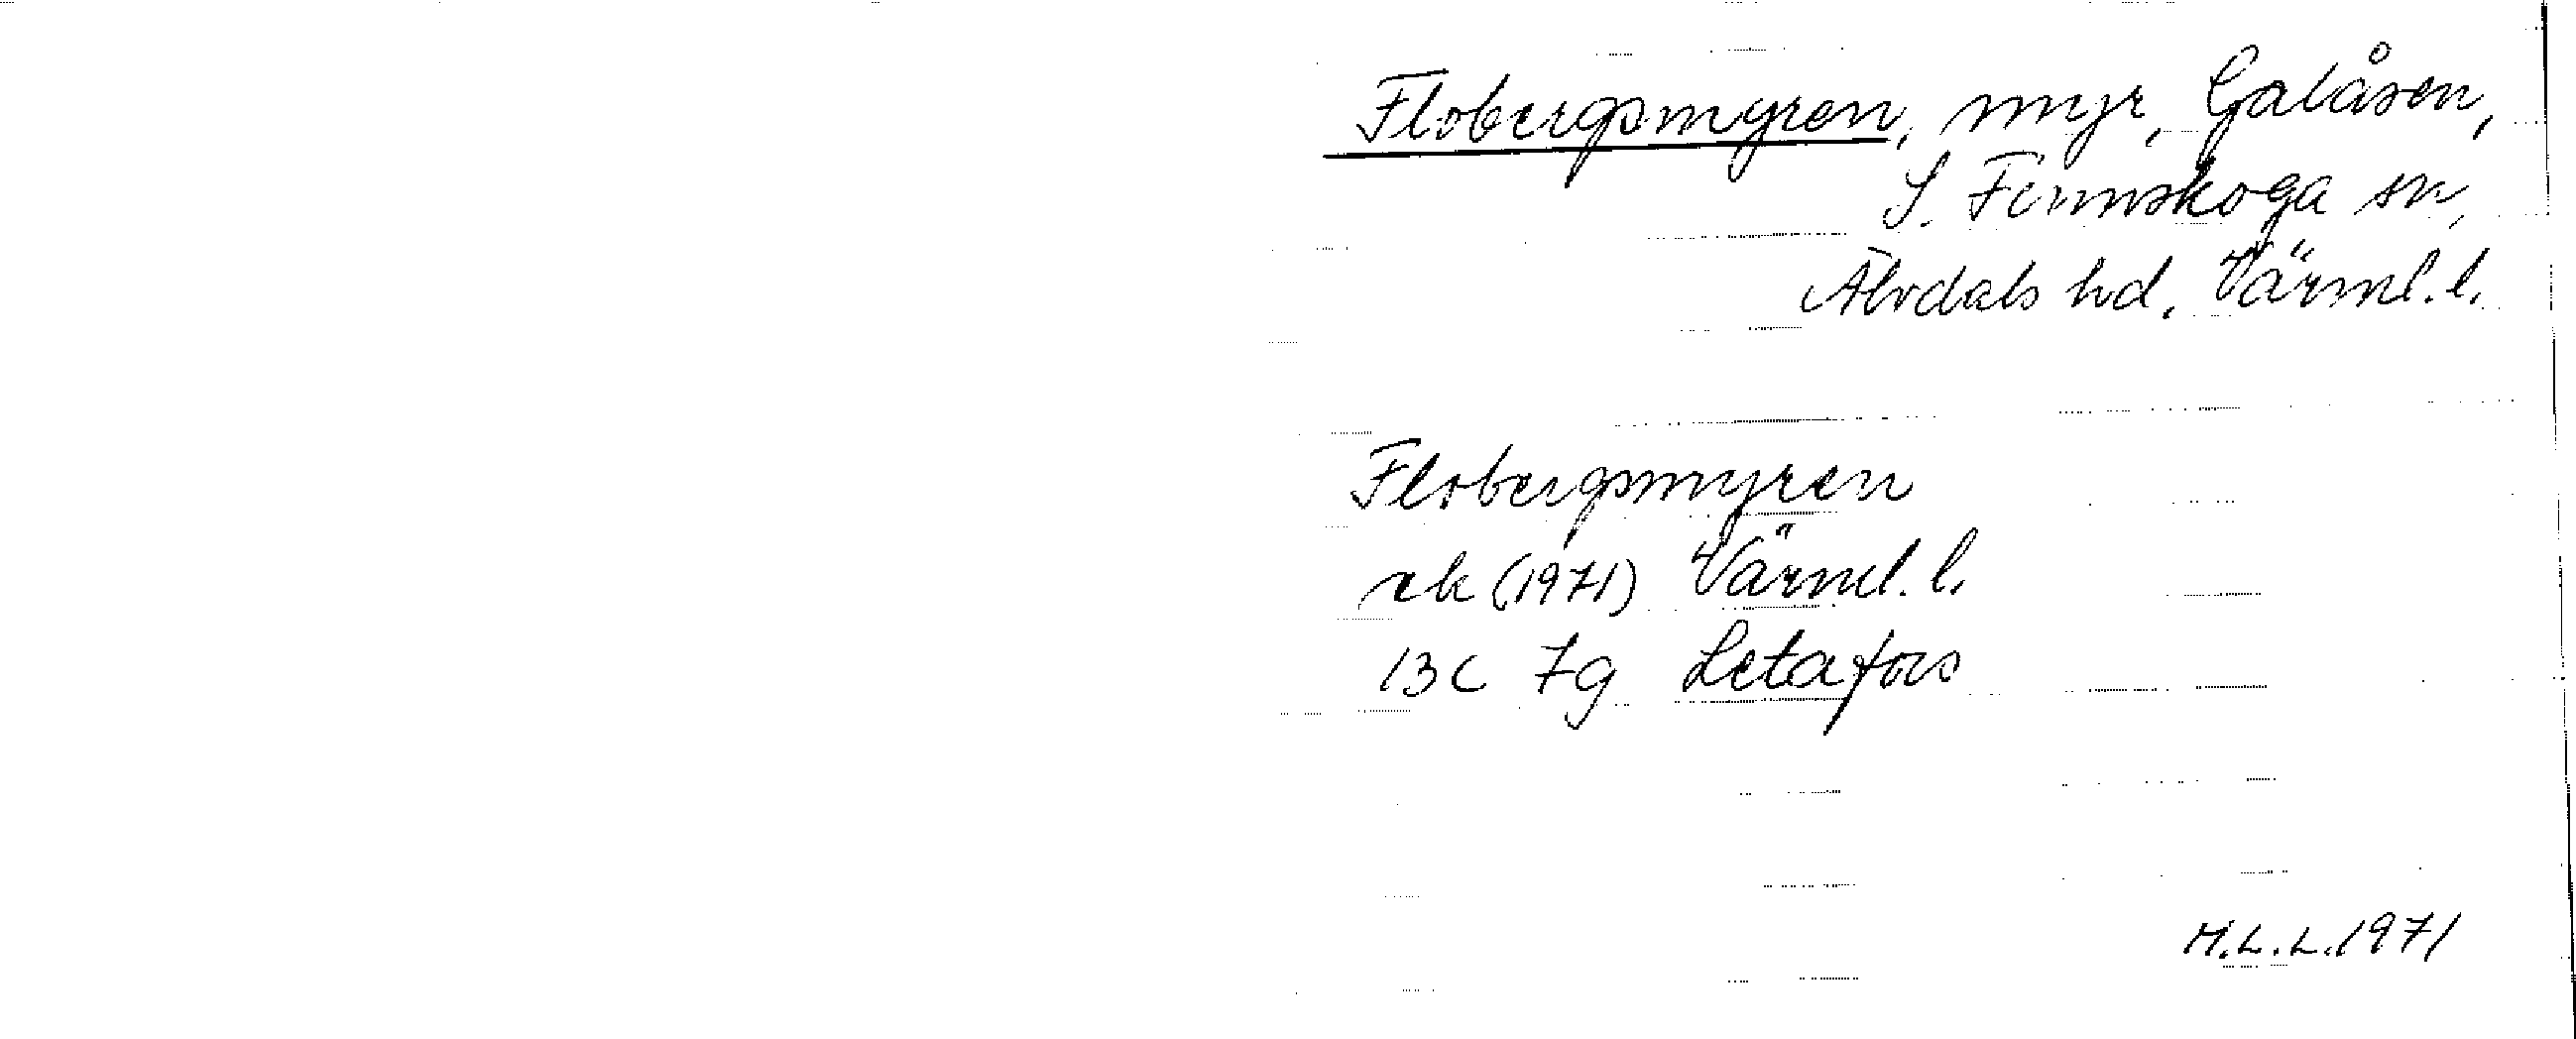 Flobergsmyren, myr, Galåsen,
S. Finnskoga sn,
Älvdals hd, Värml. l.
Flobergsmyren
ek (1971) Värml. l.
13C 7g Letafors
M.L.L. 1971